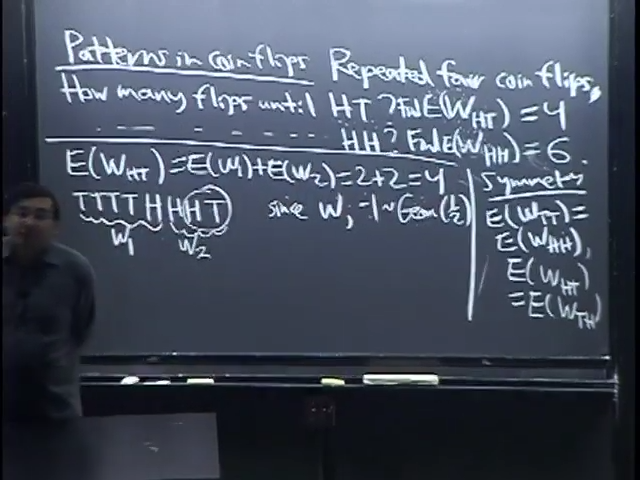 Patterns in coin flips Repeated fair coin flips,
How many flips until HT? Find E(W_HT) = 4
HH? Find E(W_HH) = 6.
E(W_HT) = E(W_1) + E(W_2) = 2+2 = 4
TTTTHHHT since W_j - 1 ~ Geom(1/2)
W_1 W_2
Symmetry
E(W_TT) =
E(W_HH),
E(W_HT)
= E(W_TH)